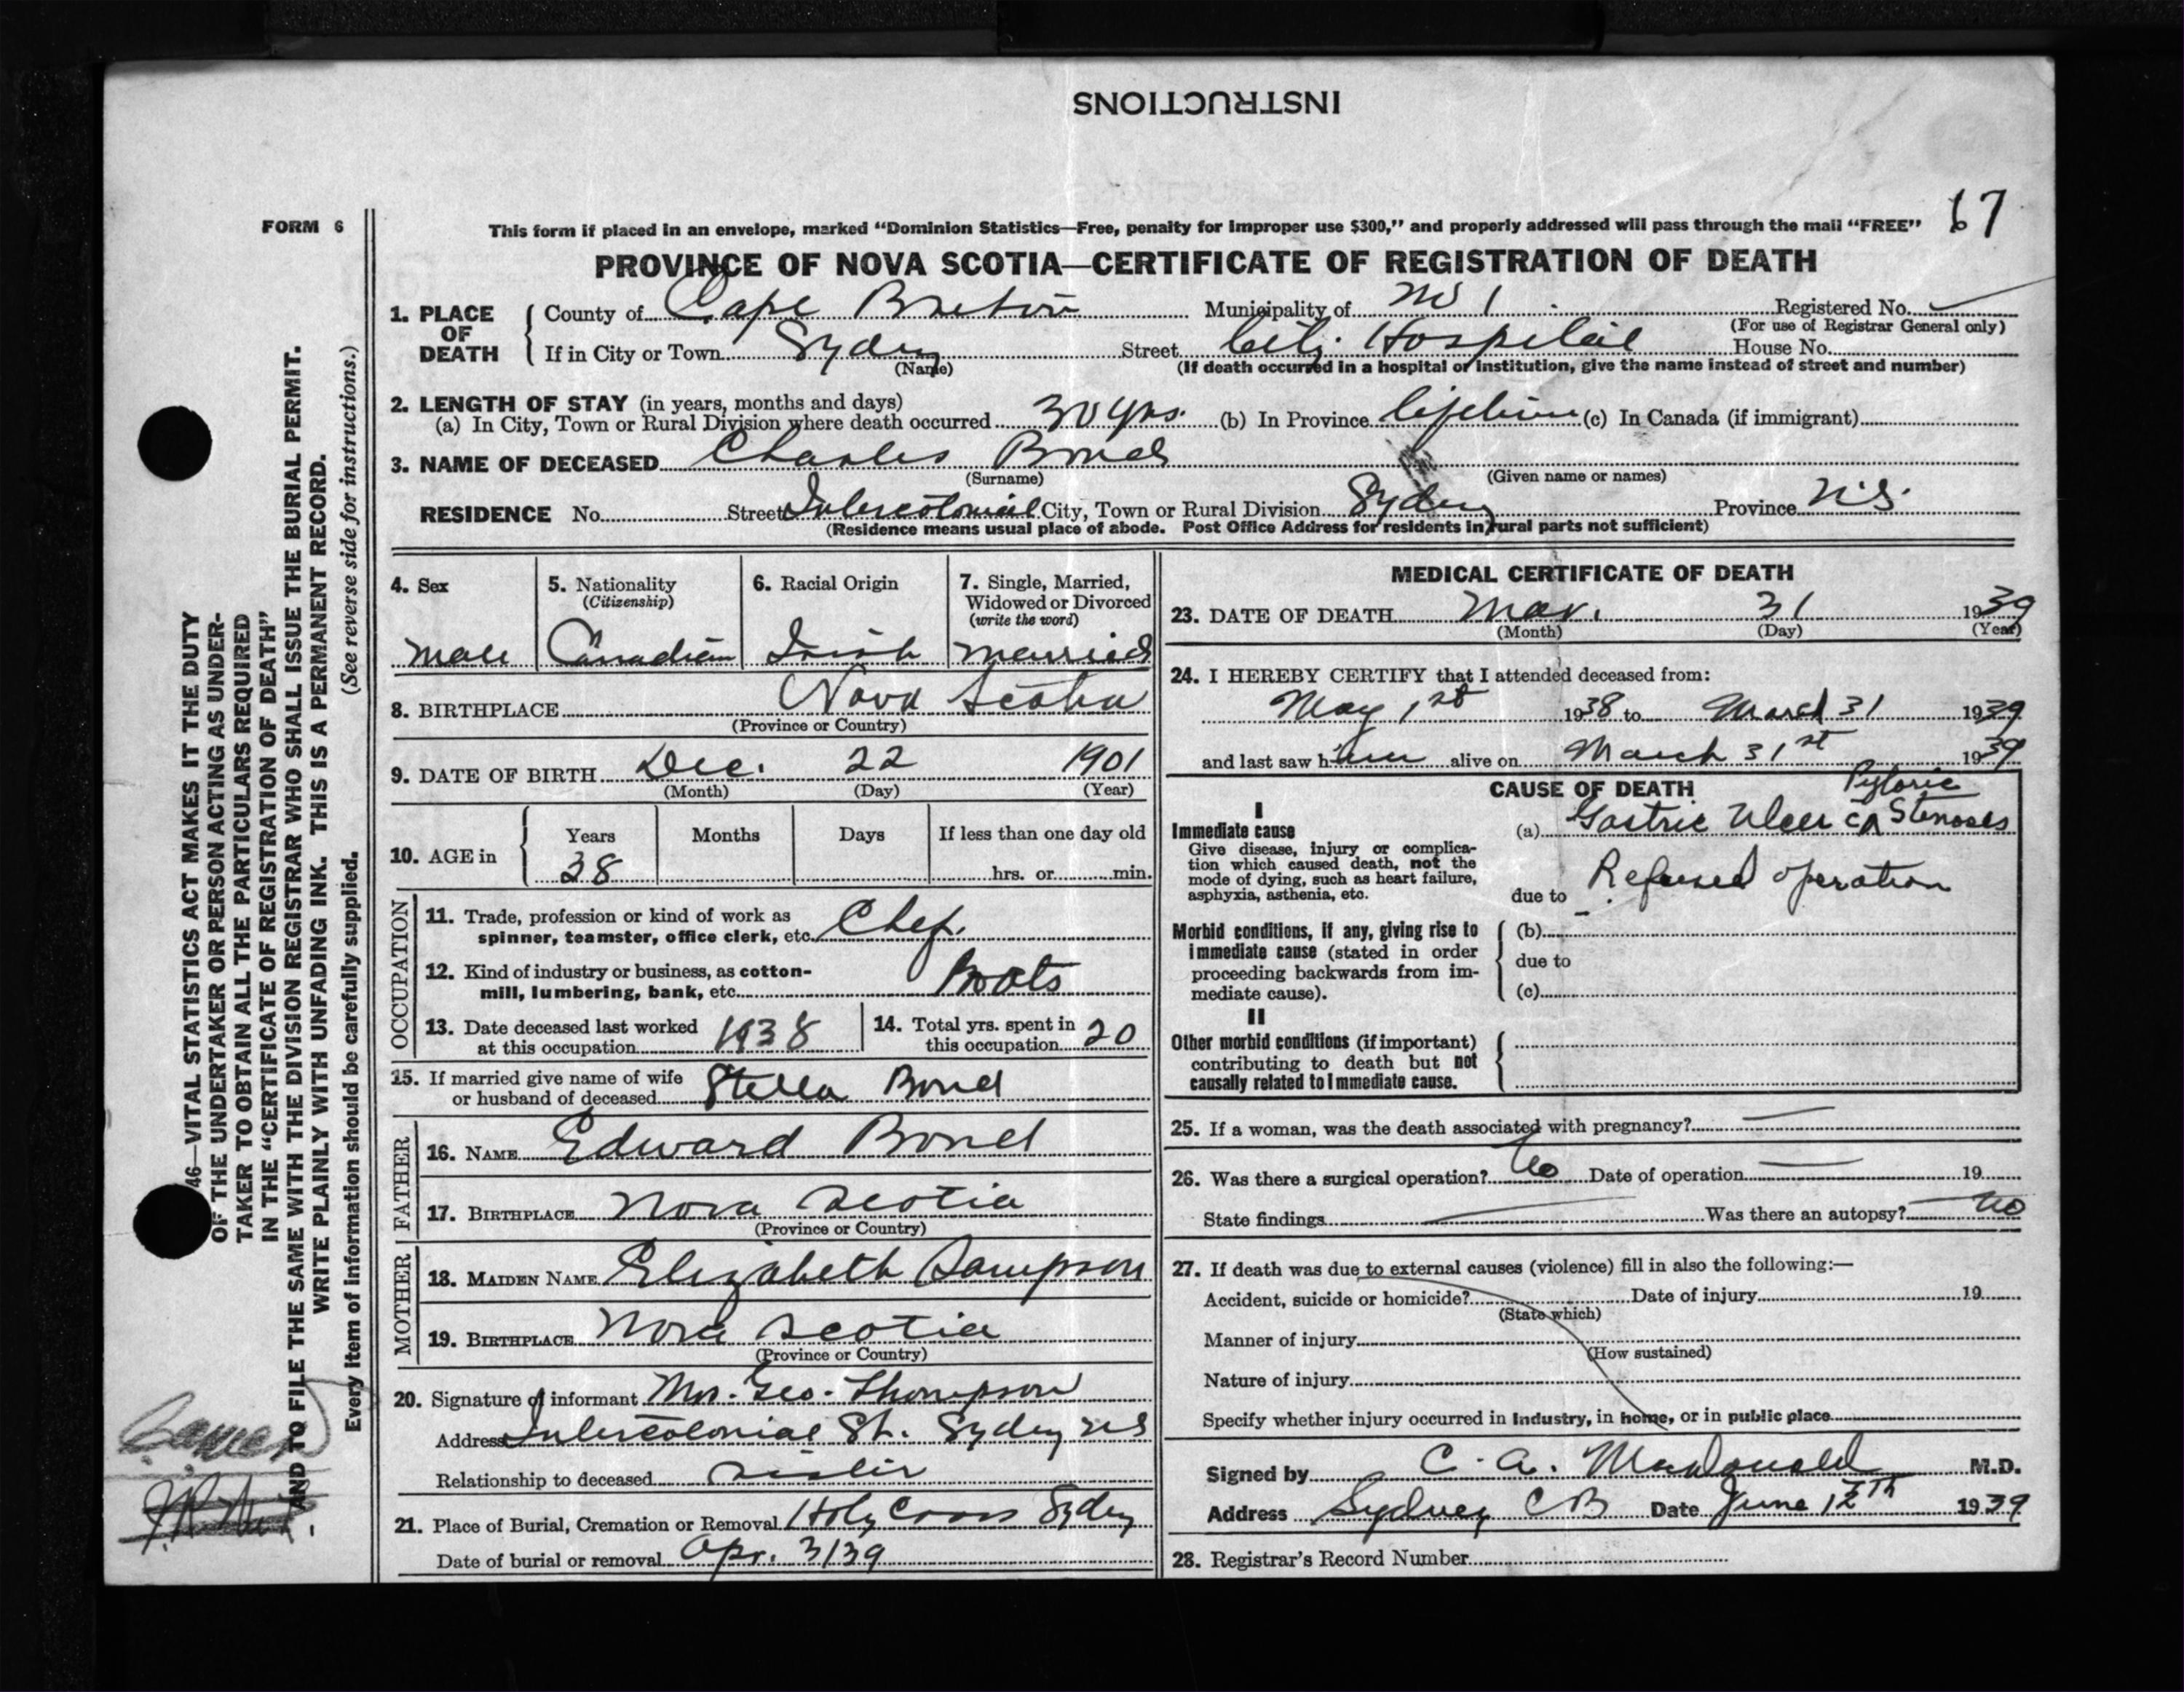 INSTRUCTIONS
67
FORM 6
This form if placed in an envelope, marked "Dominion Statistics—Free, penalty for improper use $300," and properly addressed will pass through the mail "FREE"
PROVINCE OF NOVA SCOTIA—CERTIFICATE OF REGISTRATION OF DEATH
1. PLACE OF DEATH
County of Cape Breton Municipality of No 1 Registered No.
(For use of Registrar General only)
If in City or Town Sydney Street City Hospital House No.
(Name) (If death occurred in a hospital or institution, give the name instead of street and number)
2. LENGTH OF STAY (in years, months and days)
(a) In City, Town or Rural Division where death occurred 30 yrs. (b) In Province lifetime (c) In Canada (if immigrant)
3. NAME OF DECEASED Charles Bond
(Surname) (Given name or names)
RESIDENCE No. Street Intercolonial City, Town or Rural Division Sydney Province N.S.
(Residence means usual place of abode. Post Office Address for residents in rural parts not sufficient)
4. Sex
male
5. Nationality
(Citizenship)
Canadian
6. Racial Origin
Irish
7. Single, Married,
Widowed or Divorced
(write the word)
married
8. BIRTHPLACE Nova Scotia
(Province or Country)
9. DATE OF BIRTH Dec. 22 1901
(Month) (Day) (Year)
10. AGE in
Years Months Days If less than one day old
38 hrs. or min.
OCCUPATION
11. Trade, profession or kind of work as
spinner, teamster, office clerk, etc. Chef.
12. Kind of industry or business, as cotton-
mill, lumbering, bank, etc. Boats
13. Date deceased last worked
at this occupation 1938
14. Total yrs. spent in
this occupation 20
15. If married give name of wife
or husband of deceased Stella Bond
FATHER
16. NAME Edward Bond
17. BIRTHPLACE Nova Scotia
(Province or Country)
MOTHER
18. MAIDEN NAME Elizabeth Sampson
19. BIRTHPLACE Nova Scotia
(Province or Country)
20. Signature of informant Mrs. Geo. Thompson
Address Intercolonial St. Sydney NS
Relationship to deceased sister
21. Place of Burial, Cremation or Removal Holy Cross Sydney
Date of burial or removal Apr. 3/39
MEDICAL CERTIFICATE OF DEATH
23. DATE OF DEATH Mar. 31 1939
(Month) (Day) (Year)
24. I HEREBY CERTIFY that I attended deceased from:
May 1st 1938 to March 31 1939
and last saw him alive on March 31st 1939
CAUSE OF DEATH
I
Immediate cause
Give disease, injury or complica-
tion which caused death, not the
mode of dying, such as heart failure,
asphyxia, asthenia, etc.
Pyloric
(a) Gastric Ulcer Stenoses
due to Refused operation
Morbid conditions, if any, giving rise to
immediate cause (stated in order
proceeding backwards from im-
mediate cause).
(b)
due to
(c)
II
Other morbid conditions (if important)
contributing to death but not
causally related to immediate cause.
25. If a woman, was the death associated with pregnancy? —
26. Was there a surgical operation? No Date of operation — 19
State findings — Was there an autopsy? No
27. If death was due to external causes (violence) fill in also the following:—
Accident, suicide or homicide? Date of injury 19
(State which)
Manner of injury
(How sustained)
Nature of injury
Specify whether injury occurred in industry, in home, or in public place
Signed by C. A. MacDonald M.D.
Address Sydney CB Date June 12TH 1939
28. Registrar's Record Number
46—VITAL STATISTICS ACT MAKES IT THE DUTY
OF THE UNDERTAKER OR PERSON ACTING AS UNDER-
TAKER TO OBTAIN ALL THE PARTICULARS REQUIRED
IN THE "CERTIFICATE OF REGISTRATION OF DEATH"
AND TO FILE THE SAME WITH THE DIVISION REGISTRAR WHO SHALL ISSUE THE BURIAL PERMIT.
WRITE PLAINLY WITH UNFADING INK. THIS IS A PERMANENT RECORD.
Every item of information should be carefully supplied. (See reverse side for instructions.)